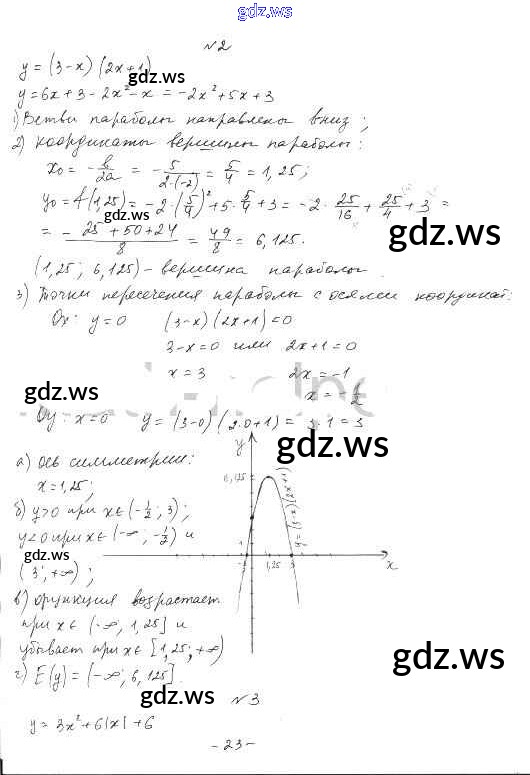 gdz.ws
№2
y = (3-x)(2x+1)
gdz.ws
y = 6x + 3 - 2x² - x = -2x² + 5x + 3
1) Ветви параболы направлены вниз;
2) Координаты вершины параболы:
x₀ = -b/2a = -5/2·(-2) = 5/4 = 1,25;
y₀ = f(1,25) = -2·(5/4)² + 5·5/4 + 3 = -2·25/16 + 25/4 + 3 =
gdz.ws
gdz.ws
= -25+50+24/8 = 49/8 = 6,125.
(1,25; 6,125) - вершина параболы.
3) Точки пересечения параболы с осями координат:
Ox: y=0 (3-x)(2x+1)=0
3-x=0 или 2x+1=0
x = 3 2x = -1
x = -1/2
gdz.ws
Oy: x=0 y = (3-0)(2·0+1) = 3·1 = 3
gdz.ws
а) ось симметрии:
x = 1,25;
б) y>0 при x∈(-1/2; 3);
y<0 при x∈(-∞; -1/2) и
gdz.ws
(3; +∞);
в) функция возрастает
при x∈(-∞; 1,25] и
убывает при x∈[1,25; +∞)
г) E(y) = (-∞; 6,125].
y
6,125
y=(3-x)(2x+1)
1
1,25
3
x
gdz.ws
gdz.ws
№3
y = 3x² + 6|x| + 6
- 23 -